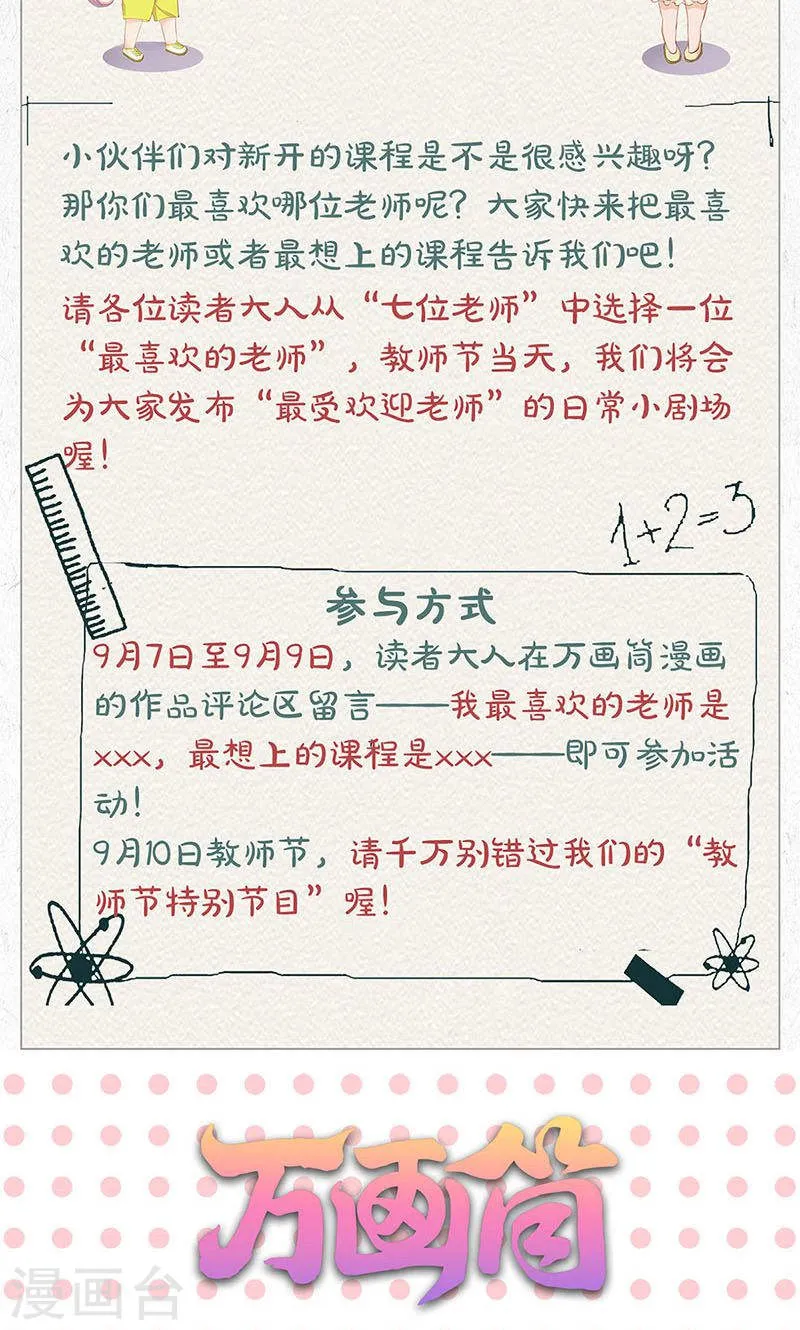 小伙伴们对新开的课程是不是很感兴趣呀？
那你们最喜欢哪位老师呢？大家快来把最喜
欢的老师或者最想上的课程告诉我们吧！
请各位读者大人从“七位老师”中选择一位
“最喜欢的老师”，教师节当天，我们将会
为大家发布“最受欢迎老师”的日常小剧场
喔！
1+2=3
参与方式
9月7日至9月9日，读者大人在万画筒漫画
的作品评论区留言——我最喜欢的老师是
xxx，最想上的课程是xxx——即可参加活
动！
9月10日教师节，请千万别错过我们的“教
师节特别节目”喔！
万画筒
漫画台